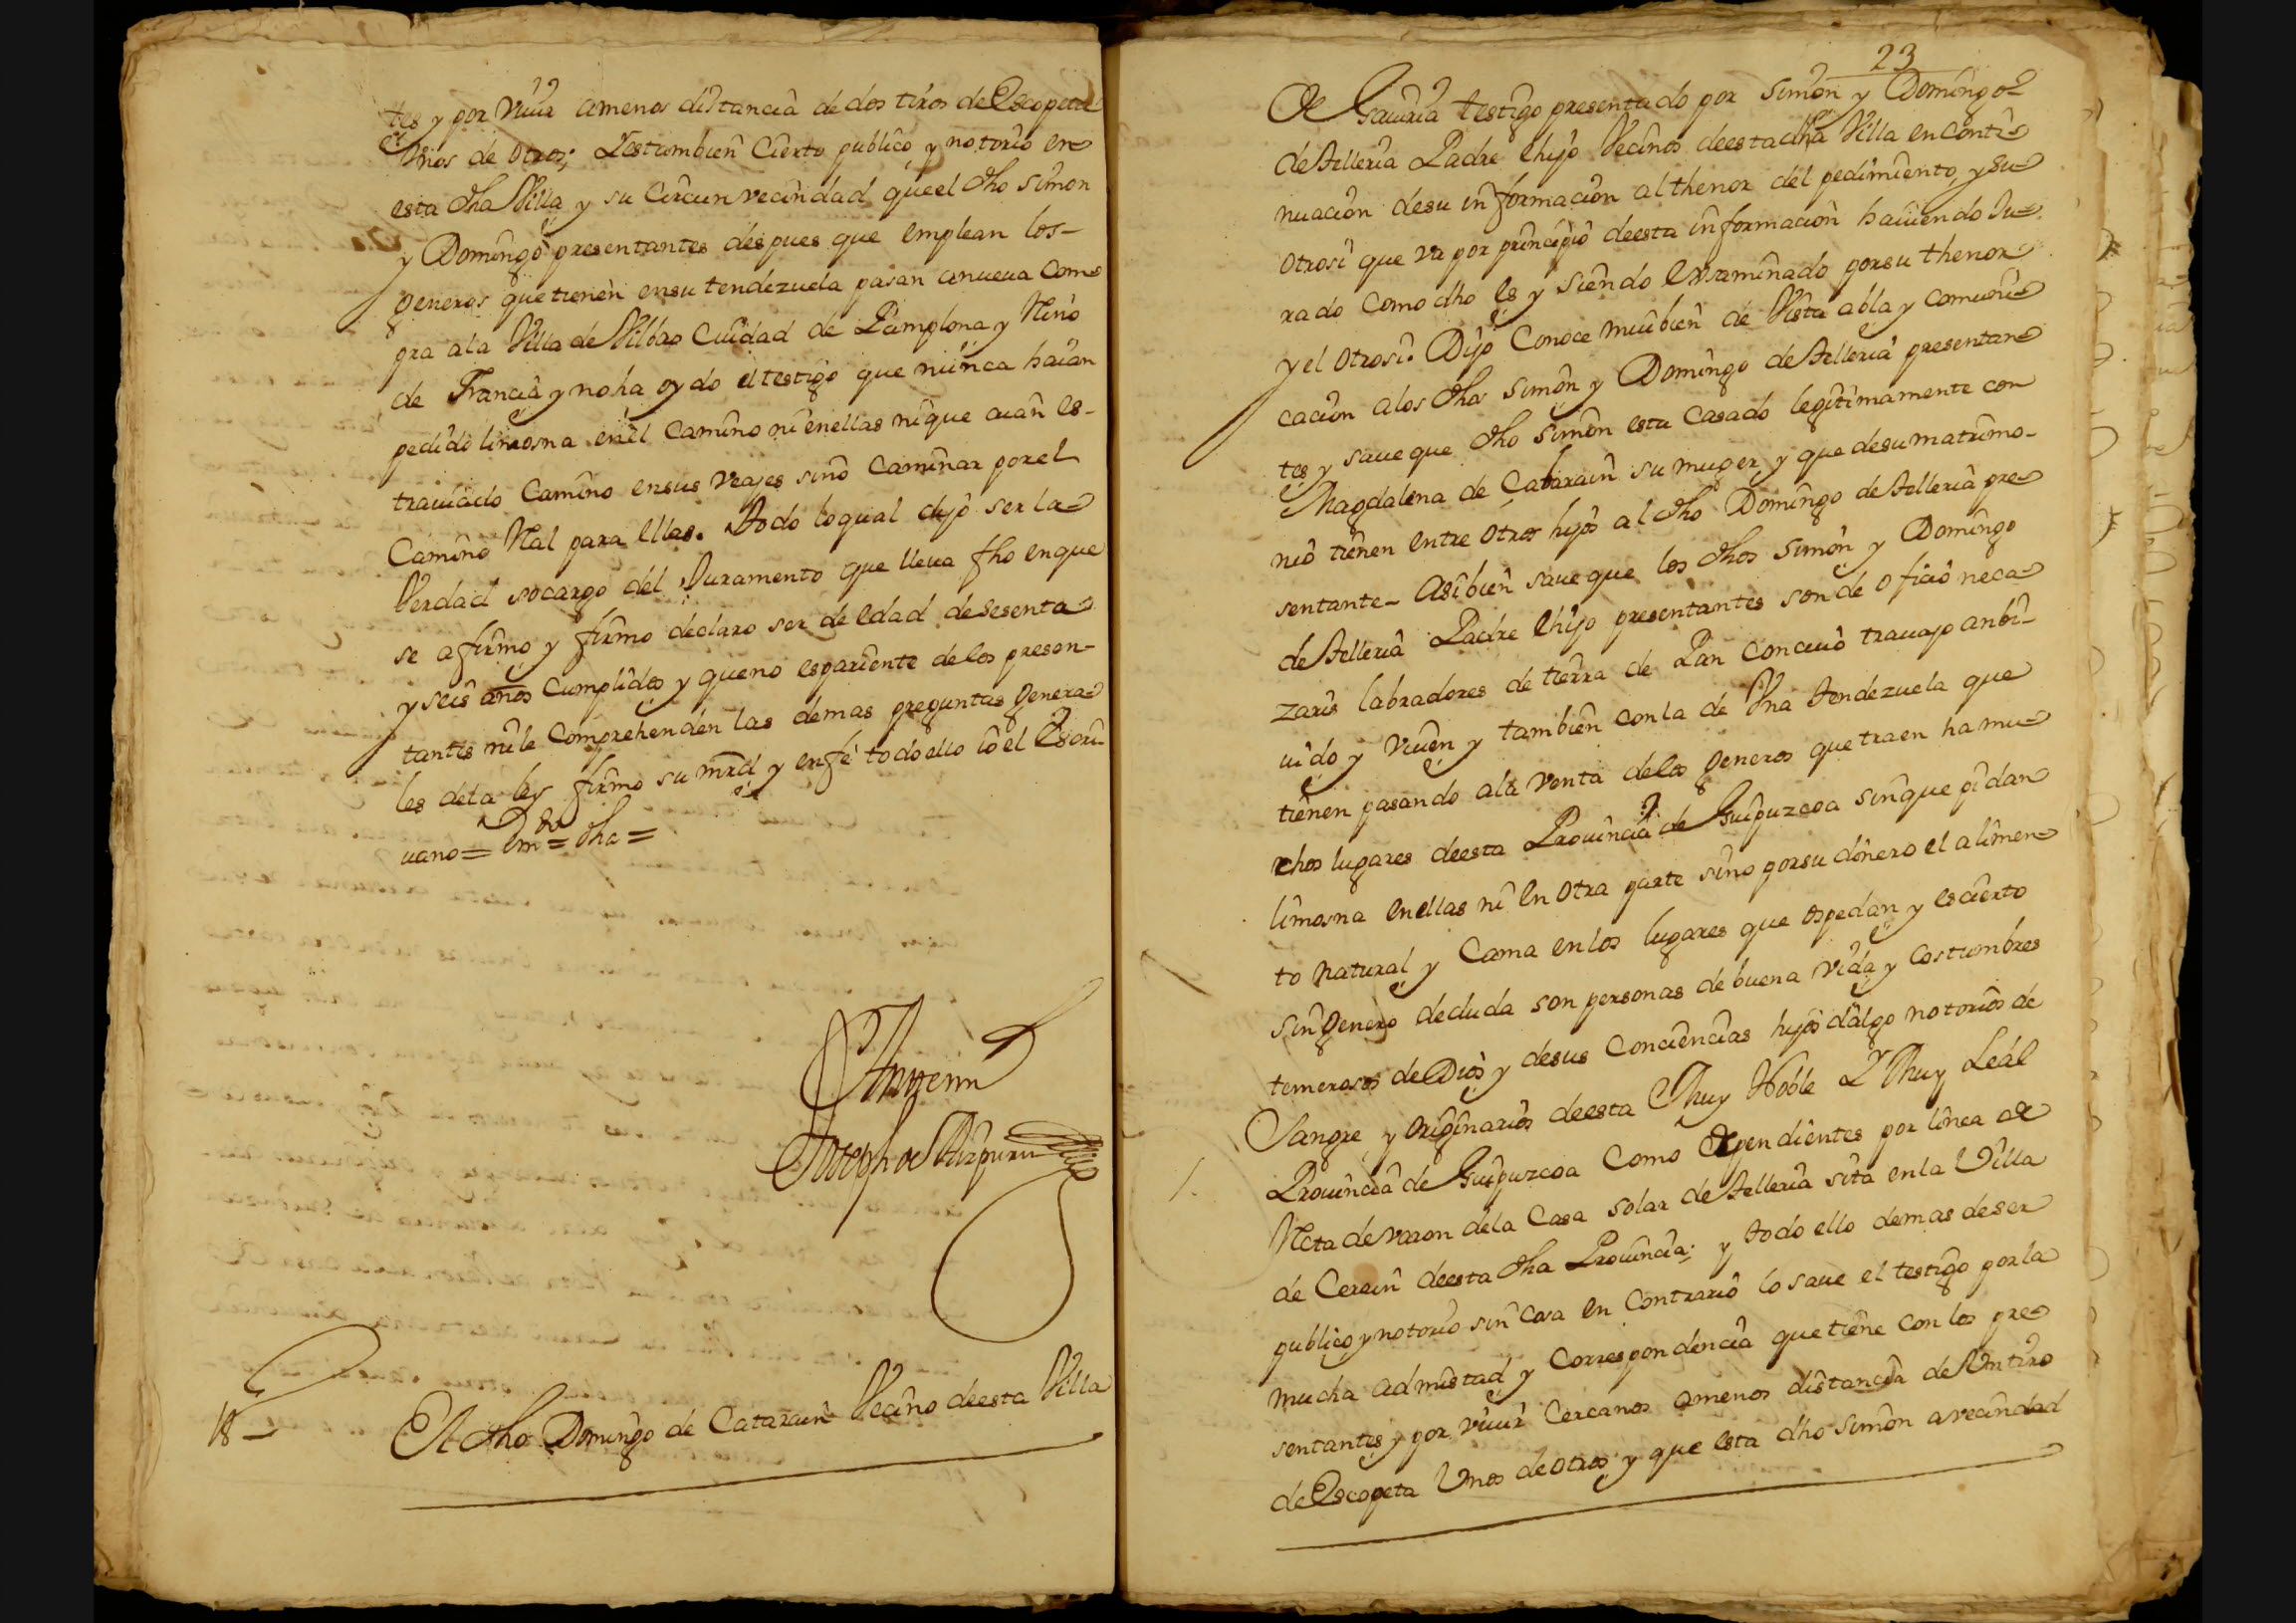 tes y por viuir amenos distancia de dos tiros de Escopeta
Vnos de otros; Yestambien Cierto publico y notorio en
esta dha Villa y su Circunvecindad queel dho Simon
y Domingo presentantes despues que emplean los
generos quetienen ensu tendezuela pasan anueua Com
pra ala Villa de Vilbao Ciudad de Pamplona y Reino
de Francia y noha oydo el testigo que nunca haian
pedido limosna enel Camino ni enellas nique aian es-
trauiado Camino ensus Veajes sino Caminar porel
Camino Ral para ellas. Todo loqual dijo ser la
Verdad socargo del Juramento que lleua fho enque
se afirmo y firmo declaro ser de edad desesenta
y seis años Cumplidos y queno espariente delos presen-
tantes nile Comprehenden las demas preguntas genera
les dela ley firmo su mrd y enfe todoello io el Escri
uano = Em.do = dha =
Joseph de Aizpuru
18 -
El dho Domingo de Catarain Vecino deesta Villa
23
De Gauiria testigo presentado por Simon y Domingo
de Telleria Padre ehijo Vecinos deesta dha Villa en Conti
nuacion desu informacion althenor del pedimiento, y su
otrosi que va por principio deesta informacion hauiendo Ju
rado Como dho es y siendo exsaminado porsu thenor
y el otrosi. Dijo Conoce mui bien de Vista abla y Comuni
cacion alos dhos Simon y Domingo de Telleria presentan
tes y saue que dho Simon esta Casado legitimamente con
Magdalena de Catarain su muger, y que desumatrimo-
nio tienen entre otros hijos al dho Domingo de Telleria pre
sentante - Asibien saue que los dhos Simon y Domingo
de Telleria Padre ehijo presentantes son de oficio neca
zaris labradores de tierra de Pan Con cuio trauajo anbi-
uido y Viuen y tambien conla de Vna tendezuela que
tienen pasando ala Venta delos generos que traen ha mu
chos lugares deesta Prouincia de Guipuzcoa sinque pidan
limosna enellas ni en otra parte sino porsu dinero el alimen
to natural y Cama enlos lugares que ospedan y escierto
sin genero deduda son personas de buena vida y Costumbres
temerosos de Dios y desus Conciencias hijos dalgo notorios de
Sangre y originarios deesta Muy Noble Y Muy Leal
Prouincia de Guipuzcoa Como dependientes por linea
Recta de varon dela Casa solar de Telleria sita enla Villa
de Cerain deesta dha Prouincia; y todo ello demas deser
publico y notorio sin Cosa en Contrario lo saue el testigo porla
mucha admistad y Correspondencia quetiene Con los pre
sentantes y por viuir Cercanos amenos distancia de Vn tiro
de Escopeta Vnos de otros y que esta dho Simon avecindad